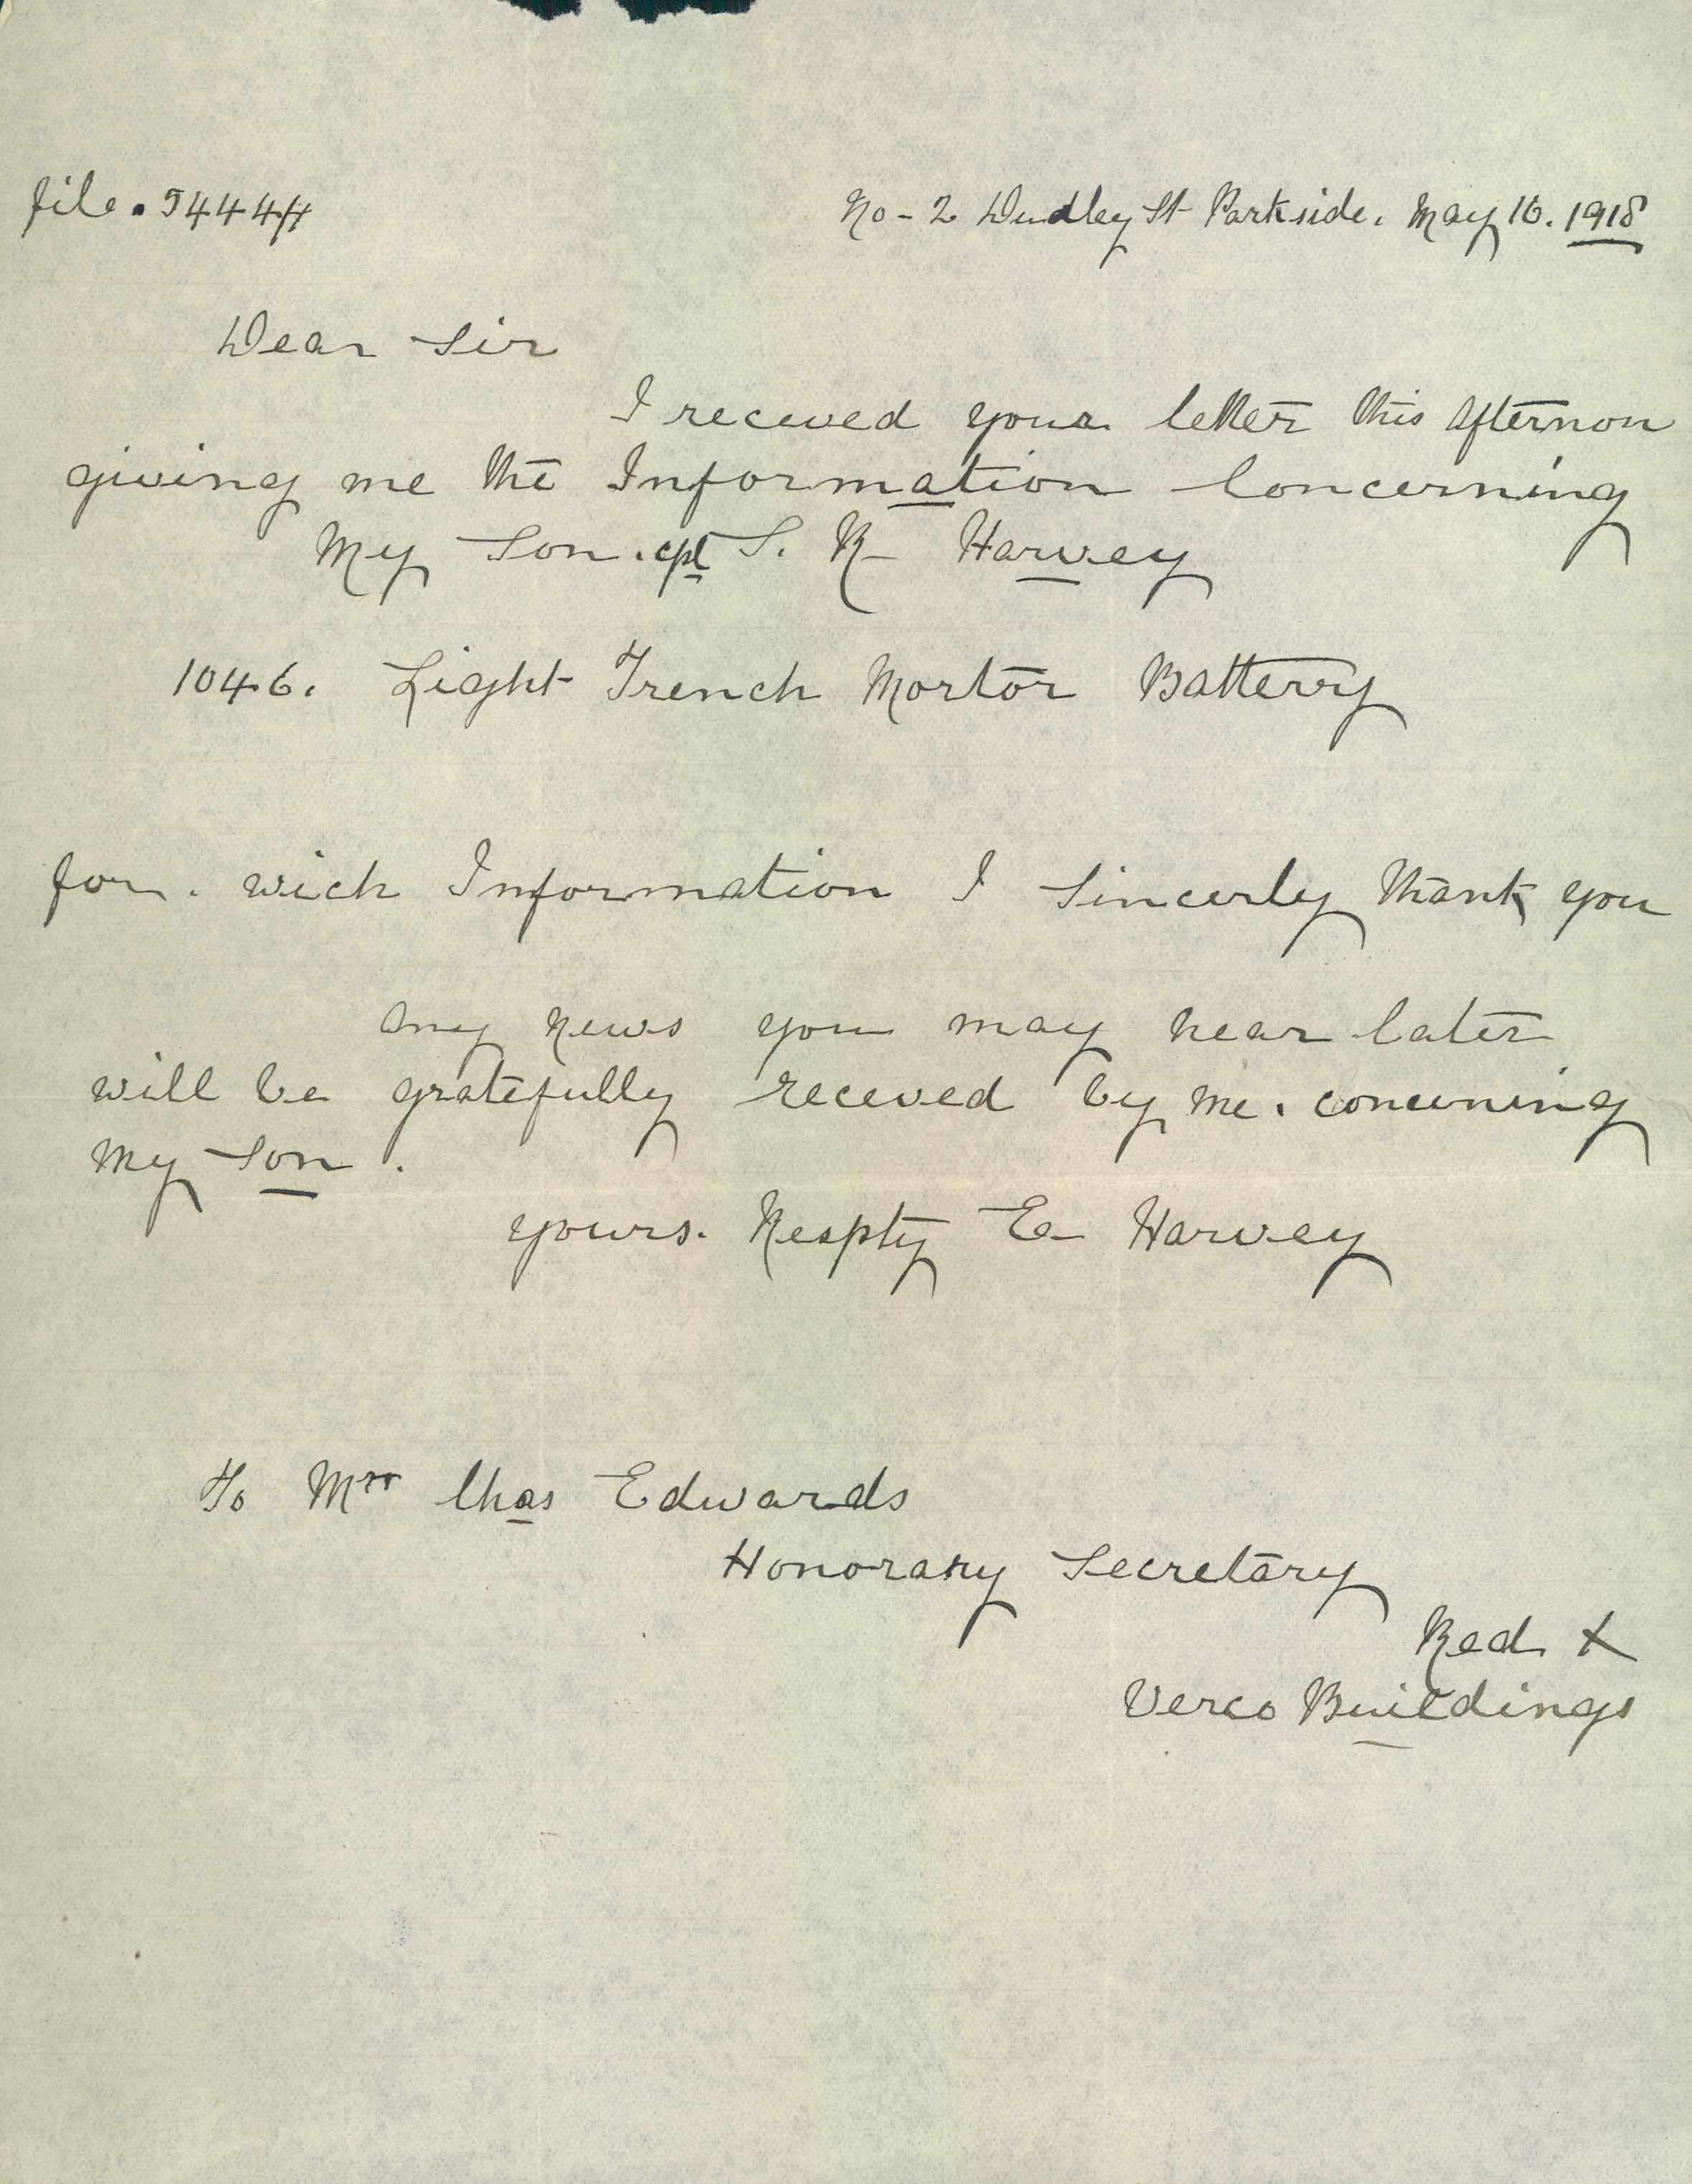 file. 54444
No - 2 Dudley St Parkside. May 16. 1918
Dear Sir
I receved your letter this Afternon
giving me the Information Concerning
My Son. cpl S. R Harvey
1046. Light Trench Mortor Battery
for. wich Information I Sincerly thank you
Any News you may hear later
will be gratefully receved by me. concerning
My Son.
yours. Respty E Harvey
To Mrr Chas Edwards
Honorary Secretary
Red X
Verco Buildings